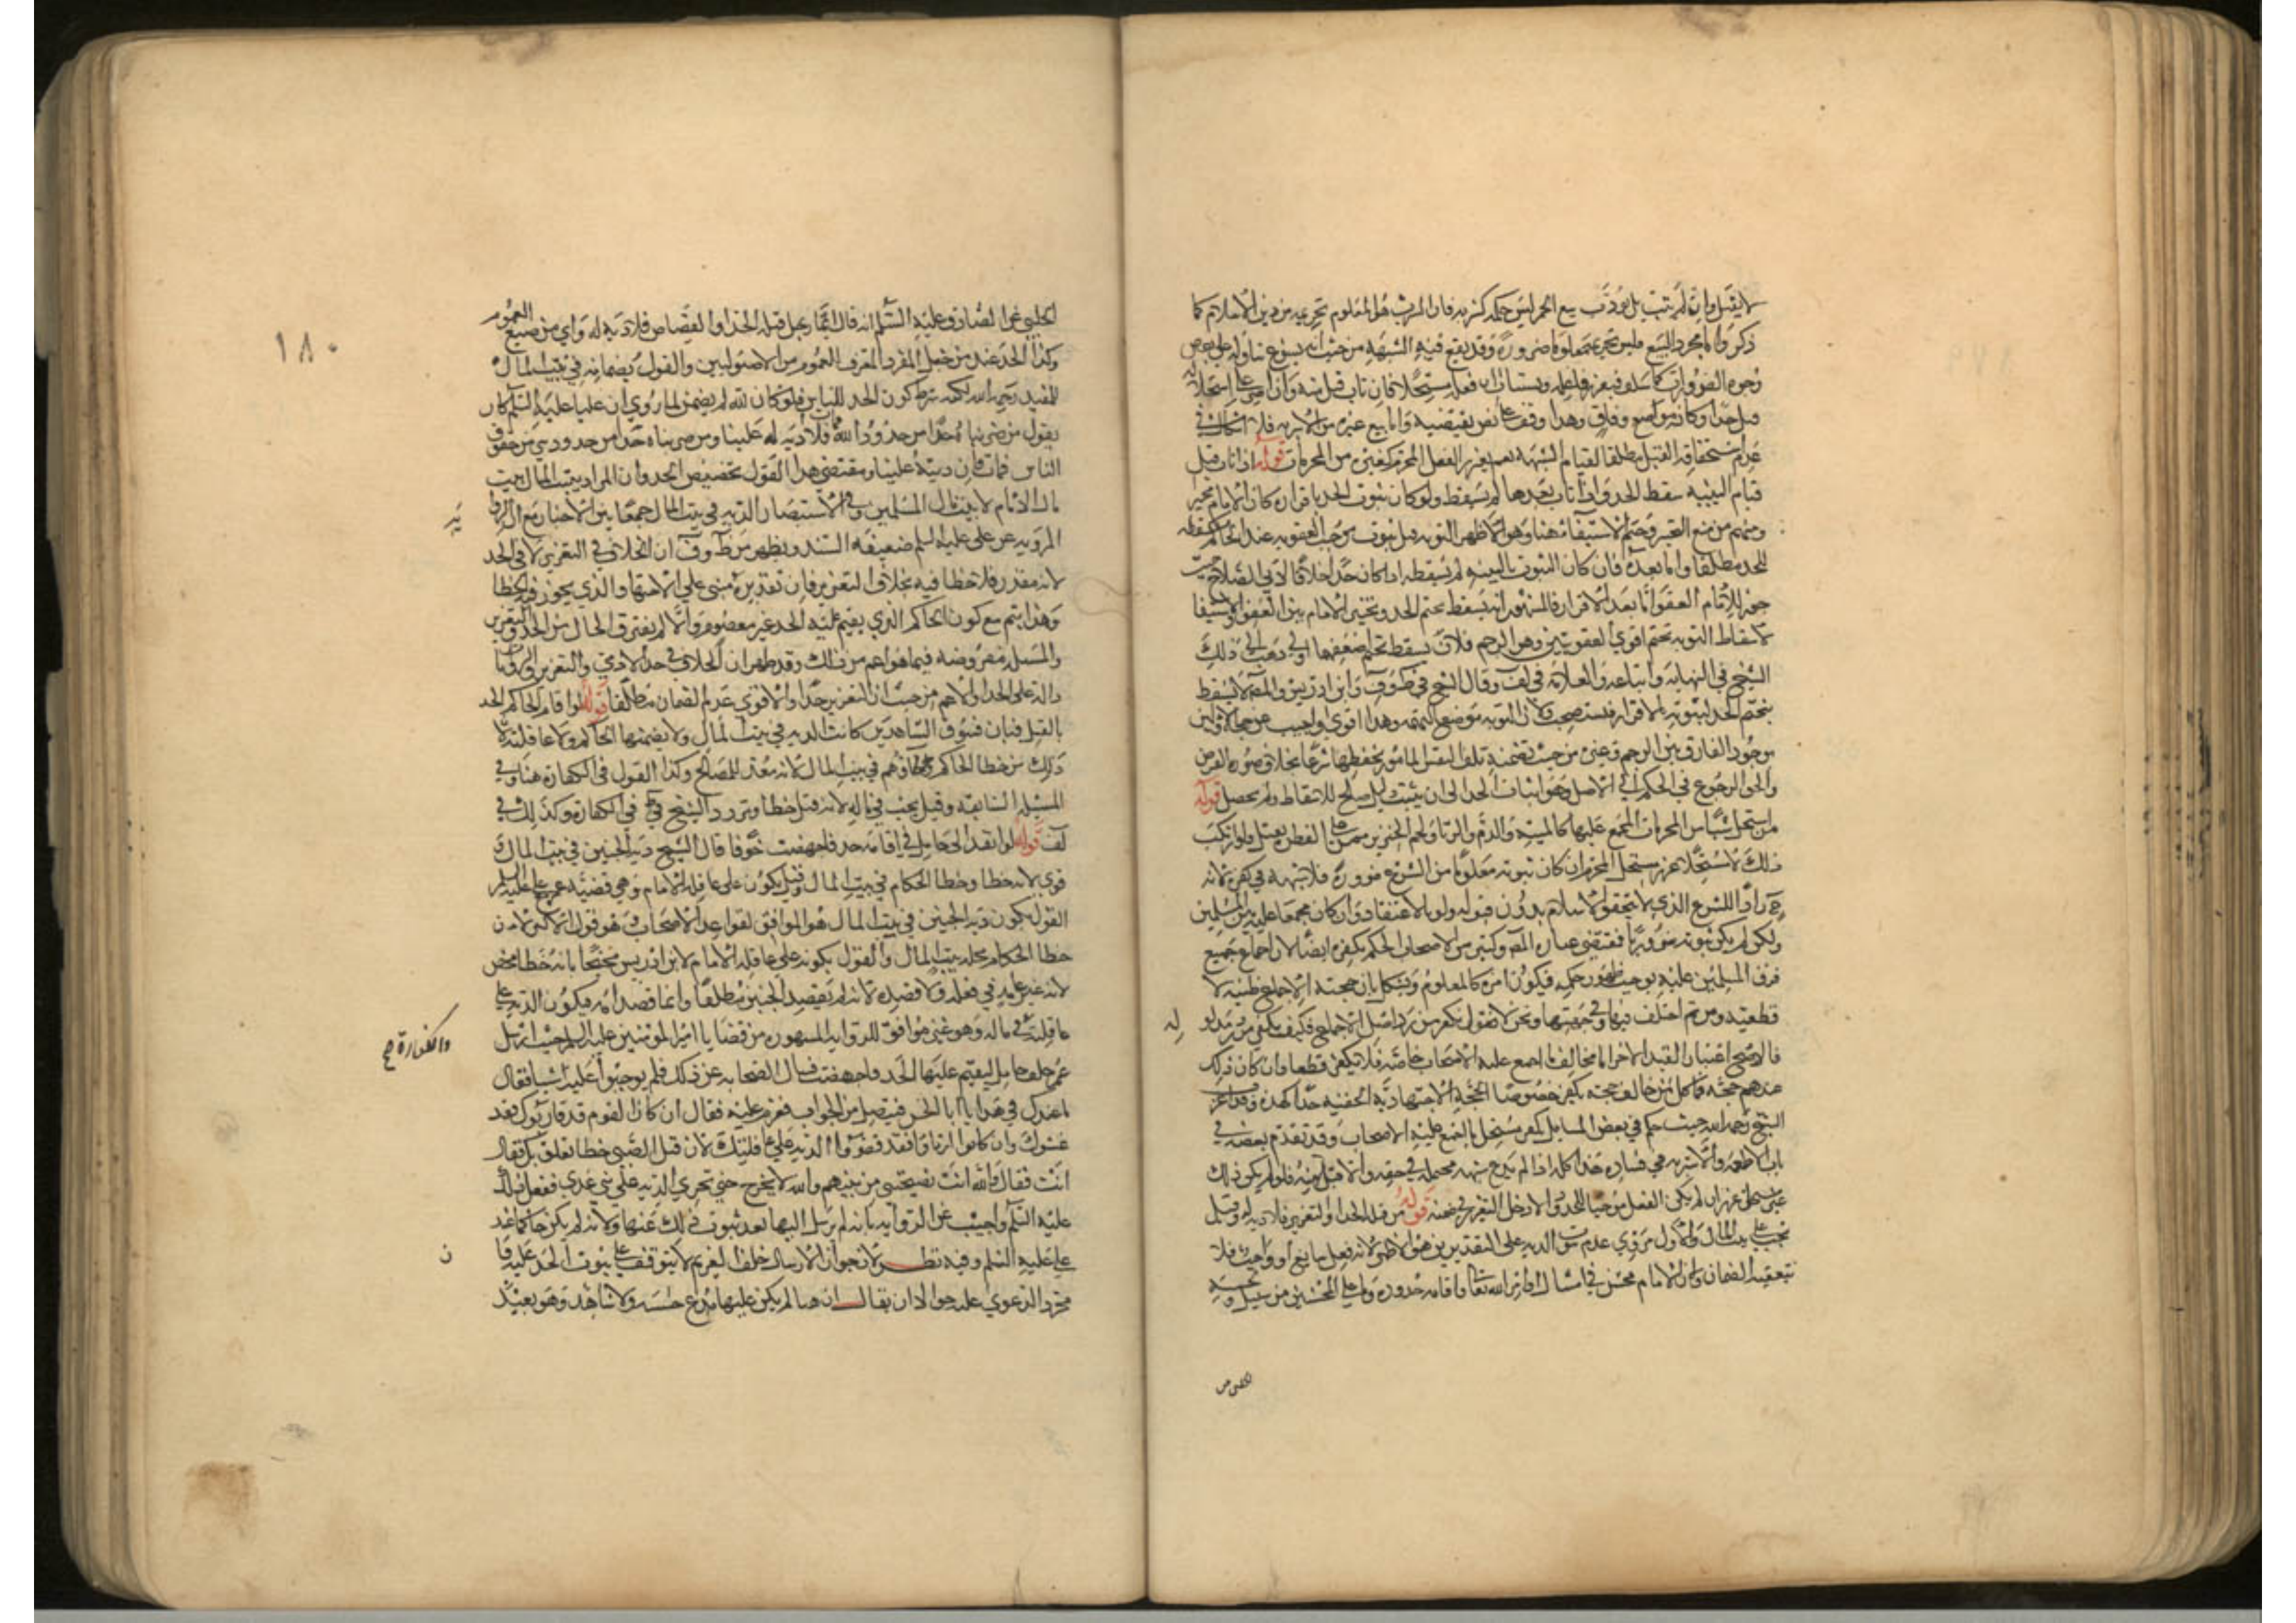 لا يقبل وان لم يتب بل يؤدب بيع الخمر ليس حكمه كشربه فان الشرب هو المعلوم تحريمه من دين الاسلام كما
ذكر واما مجرد البيع فليس تحريمه معلوما ضرورة وقد يقع فيه الشبهة من حيث انه يسوغ تناوله على بعض
وجوه الضرورات كما سلف فيعزر فاعله ويستتاب ان فعله مستحلا فان تاب قبل منه وان اصر على استحلاله
قتل حدا وكانه موضع وفاق وما وقفت على نص يقتضيه واما بيع غيره من الاشربة فلا اشكال في
عدم استحقاقه القتل مطلقا لقيام الشبهة نعم يعزر لفعل المحرم كغيره من المحرمات قوله اذا تاب قبل
قيام البينة سقط الحد وان تاب بعدها لم يسقط ولو كان ثبوت الحد باقراره كان الامام مخير
ومنهم من منع التخيير وحتم الاستيفاء هنا وهو الاظهر التوبة قبل ثبوت موجب العقوبة عند الحاكم مسقطة
للحد مطلقا واما بعده فان كان الثبوت بالبينة لم يسقطه اذا كان حدا
جوز للامام العفو واما بعد الاقرار فالمشهور انه يسقط تحتم الحد ويتخير الامام بين العفو والاستيفا
لاسقاط التوبة تحتم اقوى العقوبتين وهو الرجم فلان يسقط تحتم اضعفهما اولى ذهب الى ذلك
الشيخ في النهاية واتباعه والعلامة في لف وقال الشيخ في ط وف وابن ادريس والمص لا يسقط
تحتم الحد لثبوته بالاقرار فيستصحب ولان التوبة موضع التهمة وهذا اقوى واجيب عن حجة الاولين
بوجود الفارق بين الرجم وغيره من حيث تضمنه تلف النفس المامور بحفظها شرعا بخلاف صورة الفرض
والحق الرجوع في الحكم الى الاصل وهو اثبات الحد الى ان يثبت دليل صالح للاسقاط ولم يحصل قوله
من استحل شيئا من المحرمات المجمع عليها كالميتة والدم والربا ولحم الخنزير ممن ولد على الفطرة يقتل ولو ارتكب
ذلك لا مستحلا عزر مستحل المحرم ان كان ثبوته معلوما من الشرع ضرورة فلا شبهة في كفره لانه
ح راد للشرع الذي لا يتحقق الاسلام بدون قبوله ولو بالاعتقاد وان كان مجمعا عليه بين المسلمين
ولكن لم يكن ثبوته ضروريا فمقتضى عبارة المص وكثير من الاصحاب الحكم بكفره ايضا لان اجماع جميع
فرق المسلمين عليه يوجب ظهور حكمه فيكون امره كالمعلوم ويشكل بان حجية الاجماع ظنية لا
قطعية ومن ثم اختلف فيها وفي جهتها ونحن لا نقول بكفر من رد اصل الاجماع فكيف نكفر من رد مدلوله
فالاصح اعتبار القيد الاخر اما مخالف ما اجمع عليه الاصحاب خاصة فلا يكفر قطعا وان كان ذلك
عندهم حجة فما كل من خالف حجة يكفر خصوصا الحجة الاجتهادية الخفية جدا كهذه وقد اغرب
الشيخ رحمه الله حيث حكم في بعض المسايل بكفر مستحل ما اجمع عليه الاصحاب وقد تقدم بعضه في
باب الاطعمة والاشربة فساده هذا كله اذا لم يدع شبهة محتملة في حقه والا قبل منه فلو لم يكن ذلك
عن استحلال عزر ان لم يكن الفعل موجبا للحد والا دخل التعزير في ضمنه قوله من قتله الحد او التعزير فلا دية له وقيل
تجب على بيت المال والاول مروي عدم ثبوت الدية على التقديرين هو الاظهر لانه فعل سايغ او واجب فلا
يتعقبه الضمان ولان الامام محسن في امتثال اوامر الله تعالى واقامة حدوده وما على المحسنين من سبيل وحسنة
الحلبي عن الصادق عليه السلام انه قال ايما رجل قتله الحد او القصاص فلا دية له واي من صيغ العموم
وكذا الحد عند من جعل المفرد المعرف للعموم من الاصوليين والقول بضمانه في بيت المال
للمفيد رحمه الله لكنه شرط كون الحد للناس فلو كان لله لم يضمن لما روي ان عليا عليه السلام كان
يقول من ضربناه حدا من حدود الله فمات فلا دية له علينا ومن ضربناه حدا من حدود شي من حقوق
الناس فمات فان ديته علينا ومقتضى هذا القول تخصيص الحد وان المراد ببيت المال بيت
مال الامام لا بيت مال المسلمين وفي الاستبصار الدية في بيت المال جمعا بين الاخبار مع ان الرواية
المروية عن علي عليه السلم ضعيفة السند ويظهر من ط وف ان الخلاف في التعزير لا في الحد
لانه مقدر فلا خطا فيه بخلاف التعزير فان تقديره مبني على الاجتهاد الذي يجوز فيه الخطا
وهذا يتم مع كون الحاكم الذي يقيم عليه الحد غير معصوم والا لم يفترق الحال بين الحد والتعزير
والمسئلة مفروضة فيما هو اعم من ذلك وقد ظهر ان الخلاف في حد الادمي والتعزير
دالة على الحد او الاعم من حيث ان التعزير حد والاقوى عدم الضمان مطلقا قوله لو اقام الحاكم الحد
بالقتل فبان فسوق الشاهدين كانت الدية في بيت المال ولا يضمنها الحاكم ولا عاقلته لان
ذلك من خطا الحاكم وخطاؤهم في بيت المال لانه معد للمصالح وكذا القول في الكفارة هنا وفي
المسئلة السابقة وقيل يجب في ماله لانه قتل خطا وتردد الشيخ في ط في الكفارة وكذلك في
لف قوله لو انفذ الى حامل في اقامة حد فاجهضت خوفا قال الشيخ دية الجنين في بيت المال
قوي لانه خطا وخطا الحكام في بيت المال وقيل يكون على عاقلة الامام وهي قضية عمر مع علي عليه السلم
القول بكون دية الجنين في بيت المال هو الموافق لقواعد الاصحاب وهو قول الاكثر لان
خطا الحكام محله بيت المال والقول بكونه على عاقلة الامام لابن ادريس محتجا بانه خطا محض
لانه غير عامد في فعله ولا قصده لانه لم يقصد الجنين مطلقا وانما قصد امه فيكون الدية على
عاقلته في ماله وهو غني موافق للرواية المشهورة من قضايا امير المؤمنين عليه السلم حيث ارسل
والكفارة صح
عمر خلف حامل ليقيم عليها الحد فاجهضت فسال الصحابة عن ذلك فلم يوجبوا عليه شيا فقال
ما عندك في هذا يا ابا الحسن فتنصل من الجواب فعزم عليه فقال ان كان القوم قد قاربوك فقد
غشوك وان كانوا ارتاوا فقد قصروا الدية على عاقلتك لان قتل الصبي خطا تعلق بك فقال
انت فقال والله انت نصحتني من بينهم والله لا تبرح حتى تجري الدية على بني عدي ففعل ذلك
عليه السلم واجيب عن الرواية بانه لم يرسل اليها بعد ثبوت ذلك عنها ولانه لم يكن حاكما عند
علي عليه السلم وفيه نظر لان جواز الارسال خلف الغريم لا يتوقف على ثبوت الحد عليه فان
مجرد الدعوى عليه جوا الا ان يقال ان هنا لم يكن عليها مدع حسبة ولا شاهد وهو بعيد
١٨٠